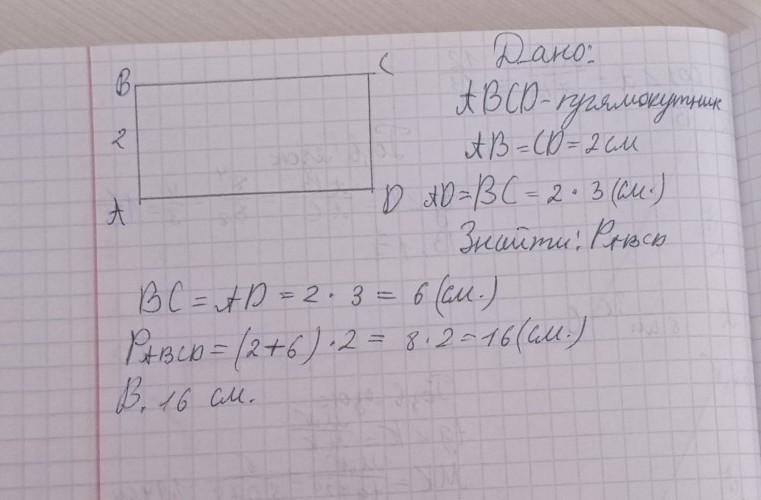 B
C
2
A
D
Дано:
ABCD - прямокутник
AB = CD = 2 см
AD = BC = 2 · 3 (см.)
Знайти: P ABCD
BC = AD = 2 · 3 = 6 (см.)
P ABCD = (2+6) · 2 = 8 · 2 = 16 (см.)
В. 16 см.